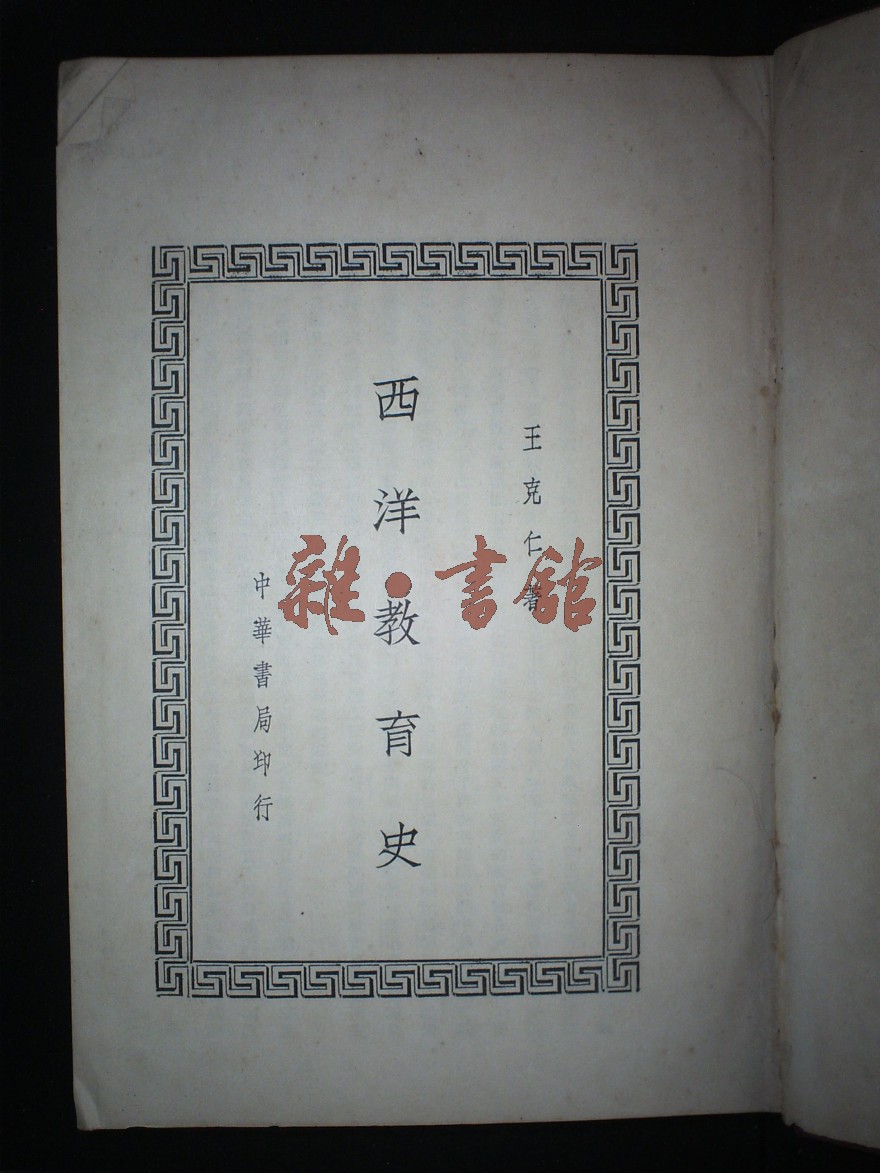 王克仁著
西洋教育史
中華書局印行
雜·書舘